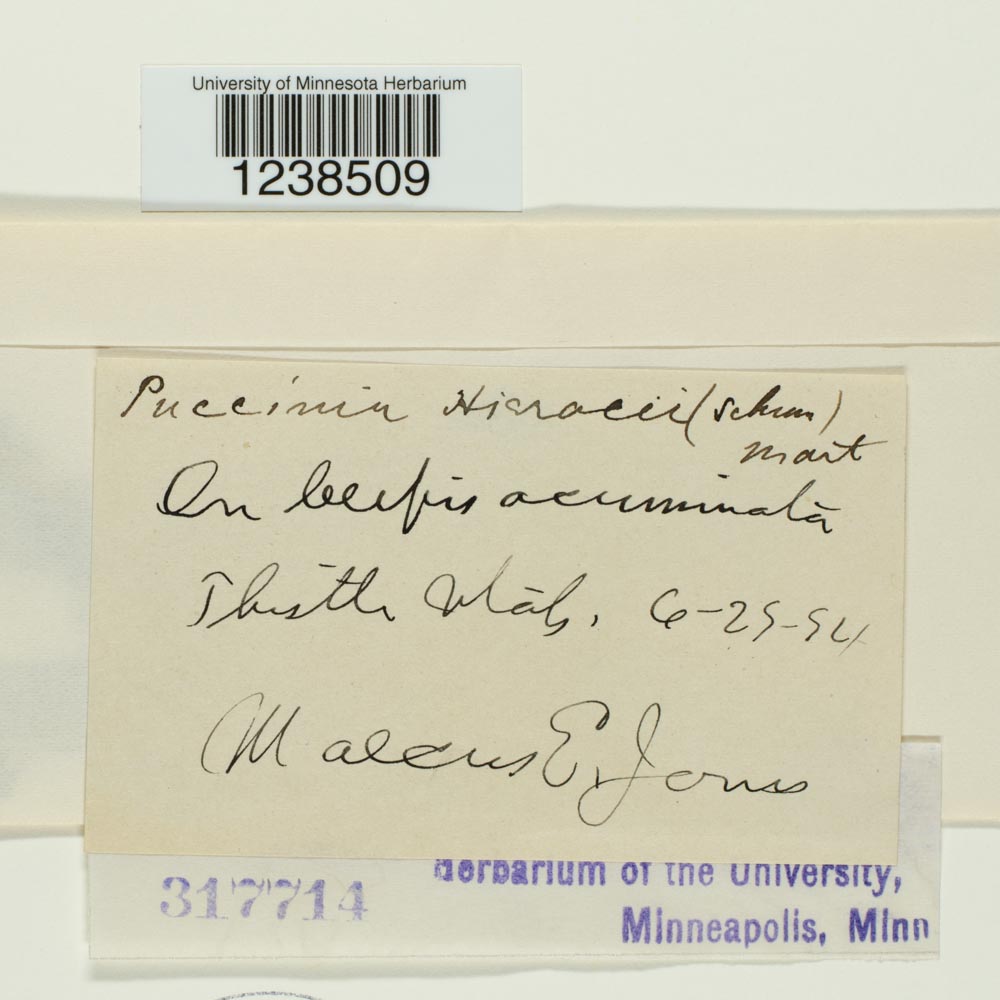 University of Minnesota Herbarium
1238509
Puccinia Hieracii (Schum)
Mart
On Crepis acuminata
Thistle Utah, 6-29-94
Marcus E. Jones
317714
Herbarium of the University,
Minneapolis, Minn